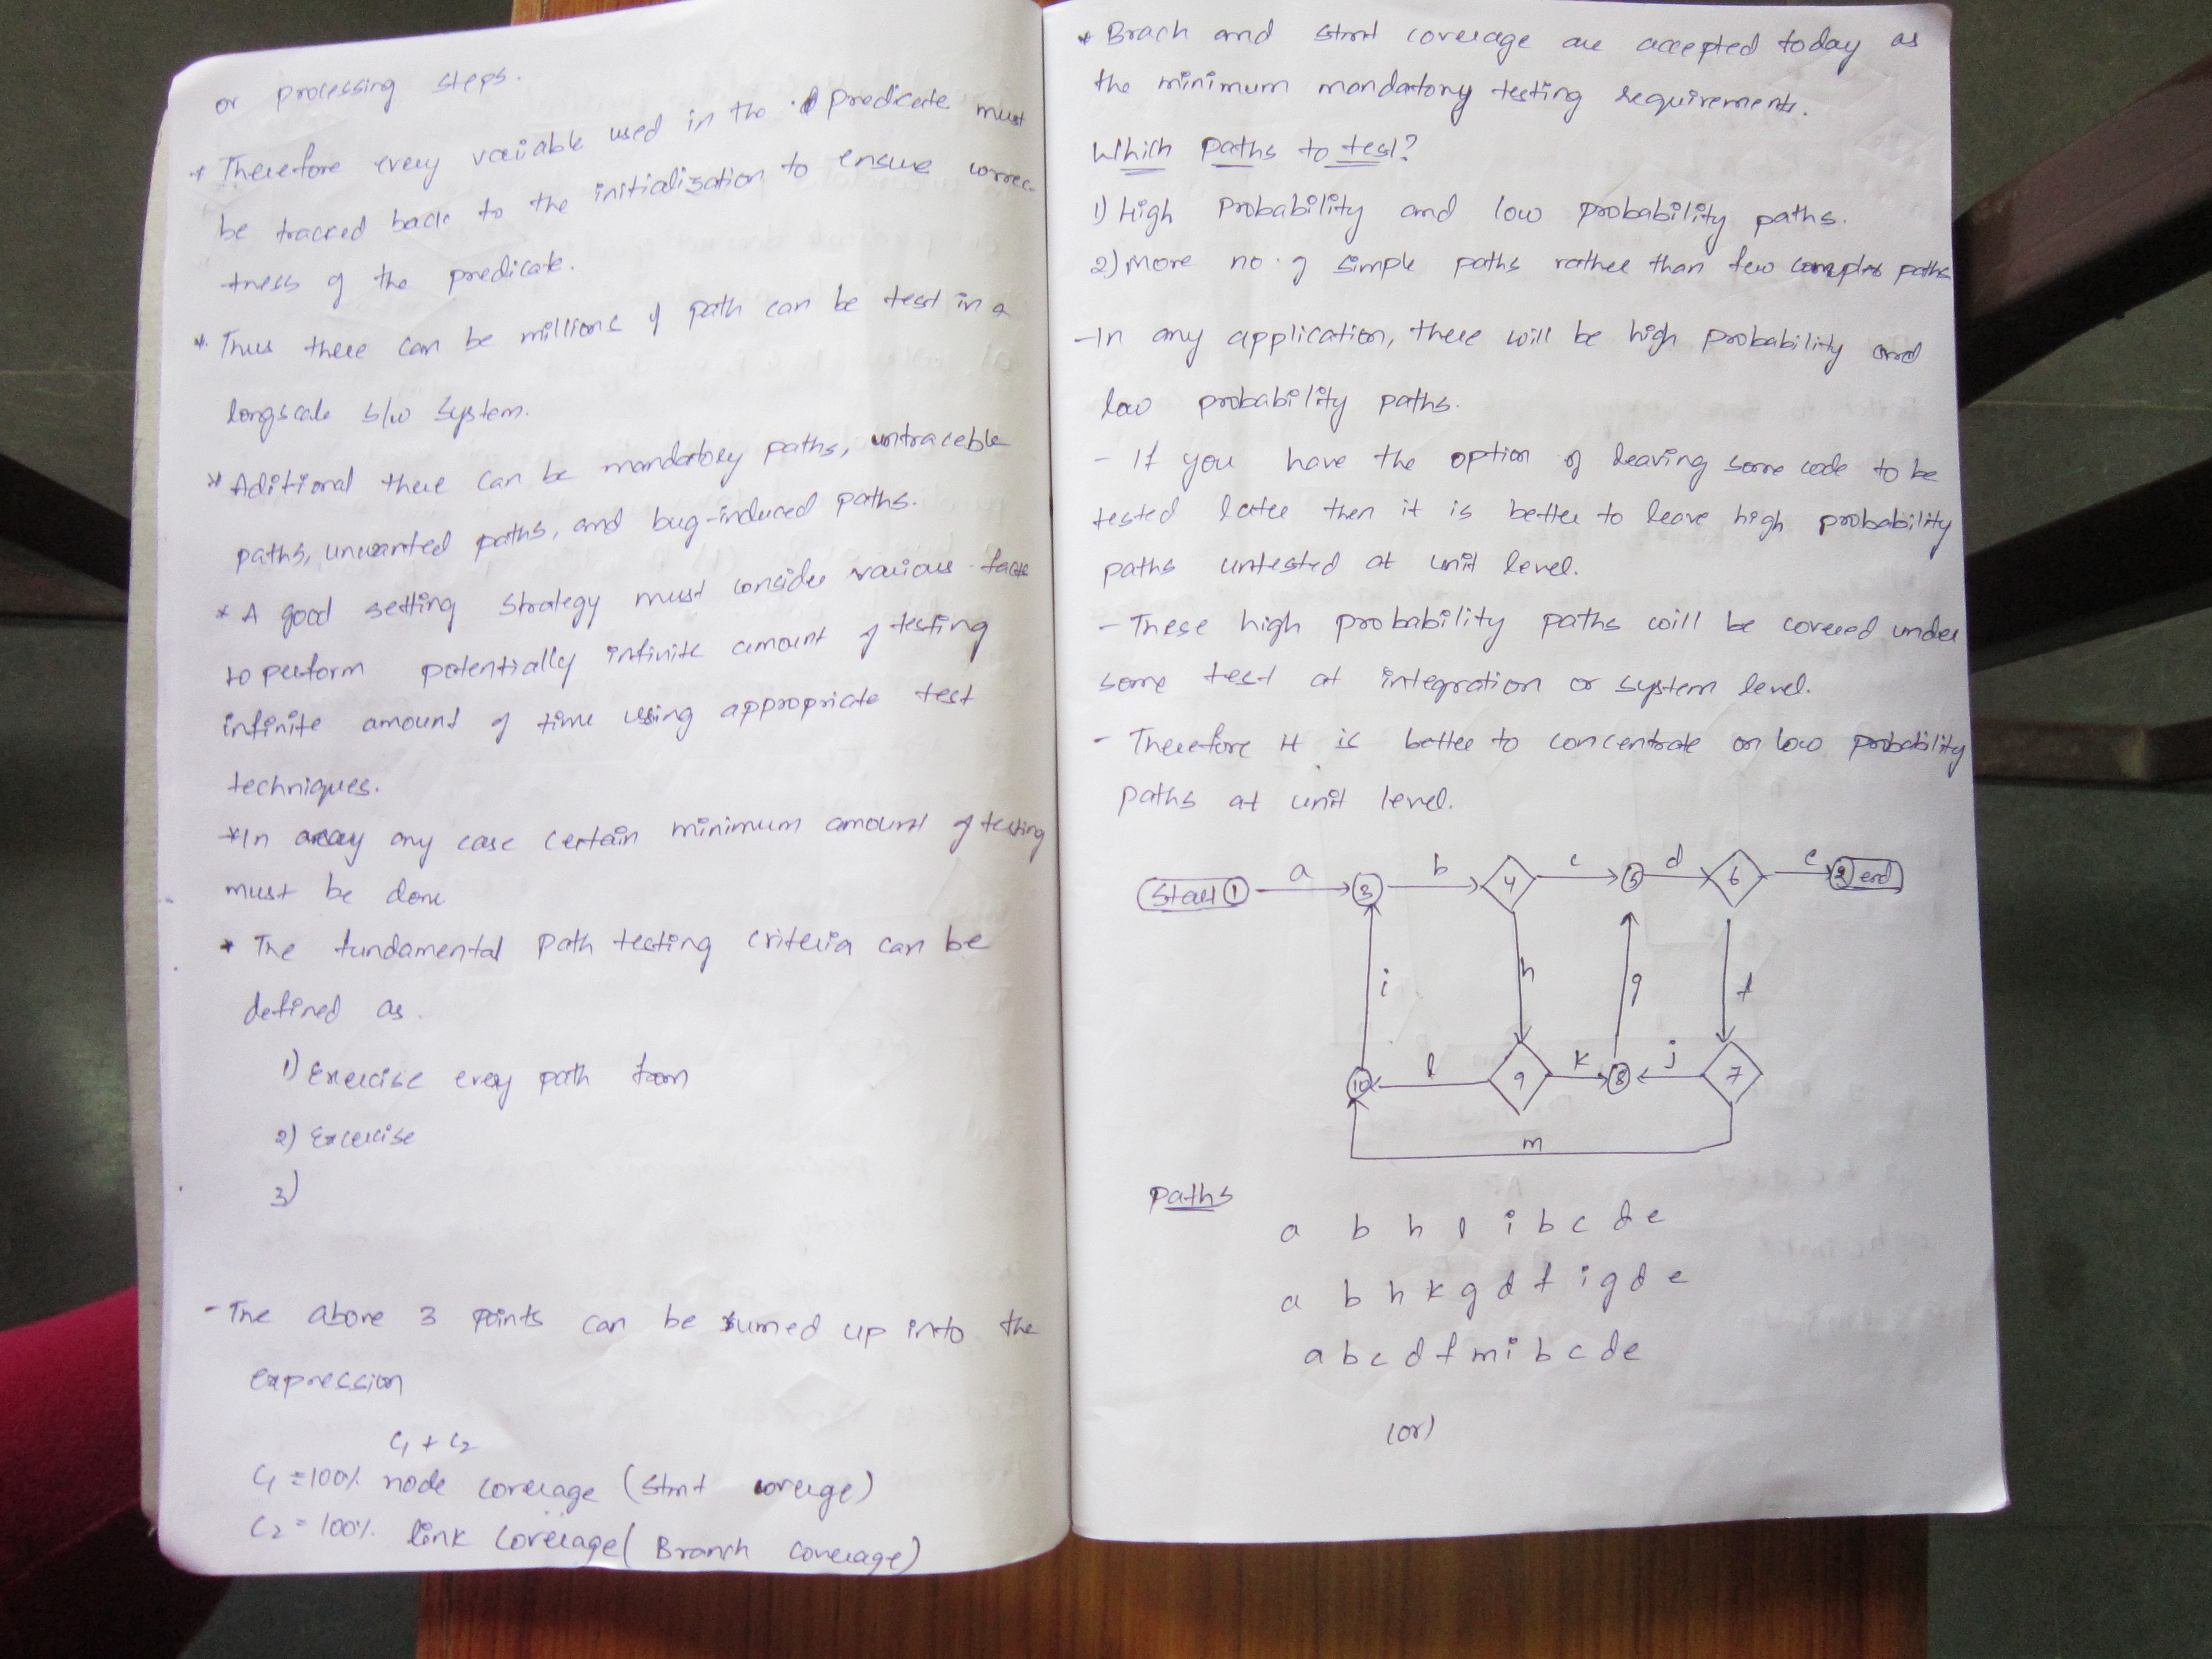 or processing steps.
* Therefore every vaiiable used in the predicate must
be traced back to the initialisation to ensure correc
tness of the predicate.
* Thus there can be millions of path can be test in a
longscale s/w system.
* Aditional there can be mandatory paths, untraceble
paths, unwanted paths, and bug-induced paths.
* A good setting strategy must consider vaiious
to perform potentially infinite amount of testing
infinite amount of time using appropriate test
techniques.
* In any case certain minimum amount of testing
must be done
* The fundamental path testing criteria can be
defined as.
1) Exercise every path from
2) Exercise
3)
- The above 3 points can be sumed up into the
expression
C1 + C2
C1 = 100% node coverage (stmt coverage)
C2 = 100% link coverage (Branch coverage)
* Brach and stmt coverage are accepted today as
the minimum mandatory testing requirement.
Which paths to test?
1) High probability and low probability paths.
2) More no. of simple paths rather than few complex paths
- In any application, there will be high probability and
low probability paths.
- If you have the option of leaving some code to be
tested later then it is better to leave high probability
paths untested at unit level.
- These high probability paths will be covered under
some test at integration or system level.
- Therefore it is better to concentrate on low probability
paths at unit level.
Start 1 a 3 b 4 c 5 d 6 e 2 end
i h g f
10 l 9 k 8 j 7
m
Paths
a b h l i b c d e
a b h k g d f j g d e
a b c d f m i b c d e
(or)